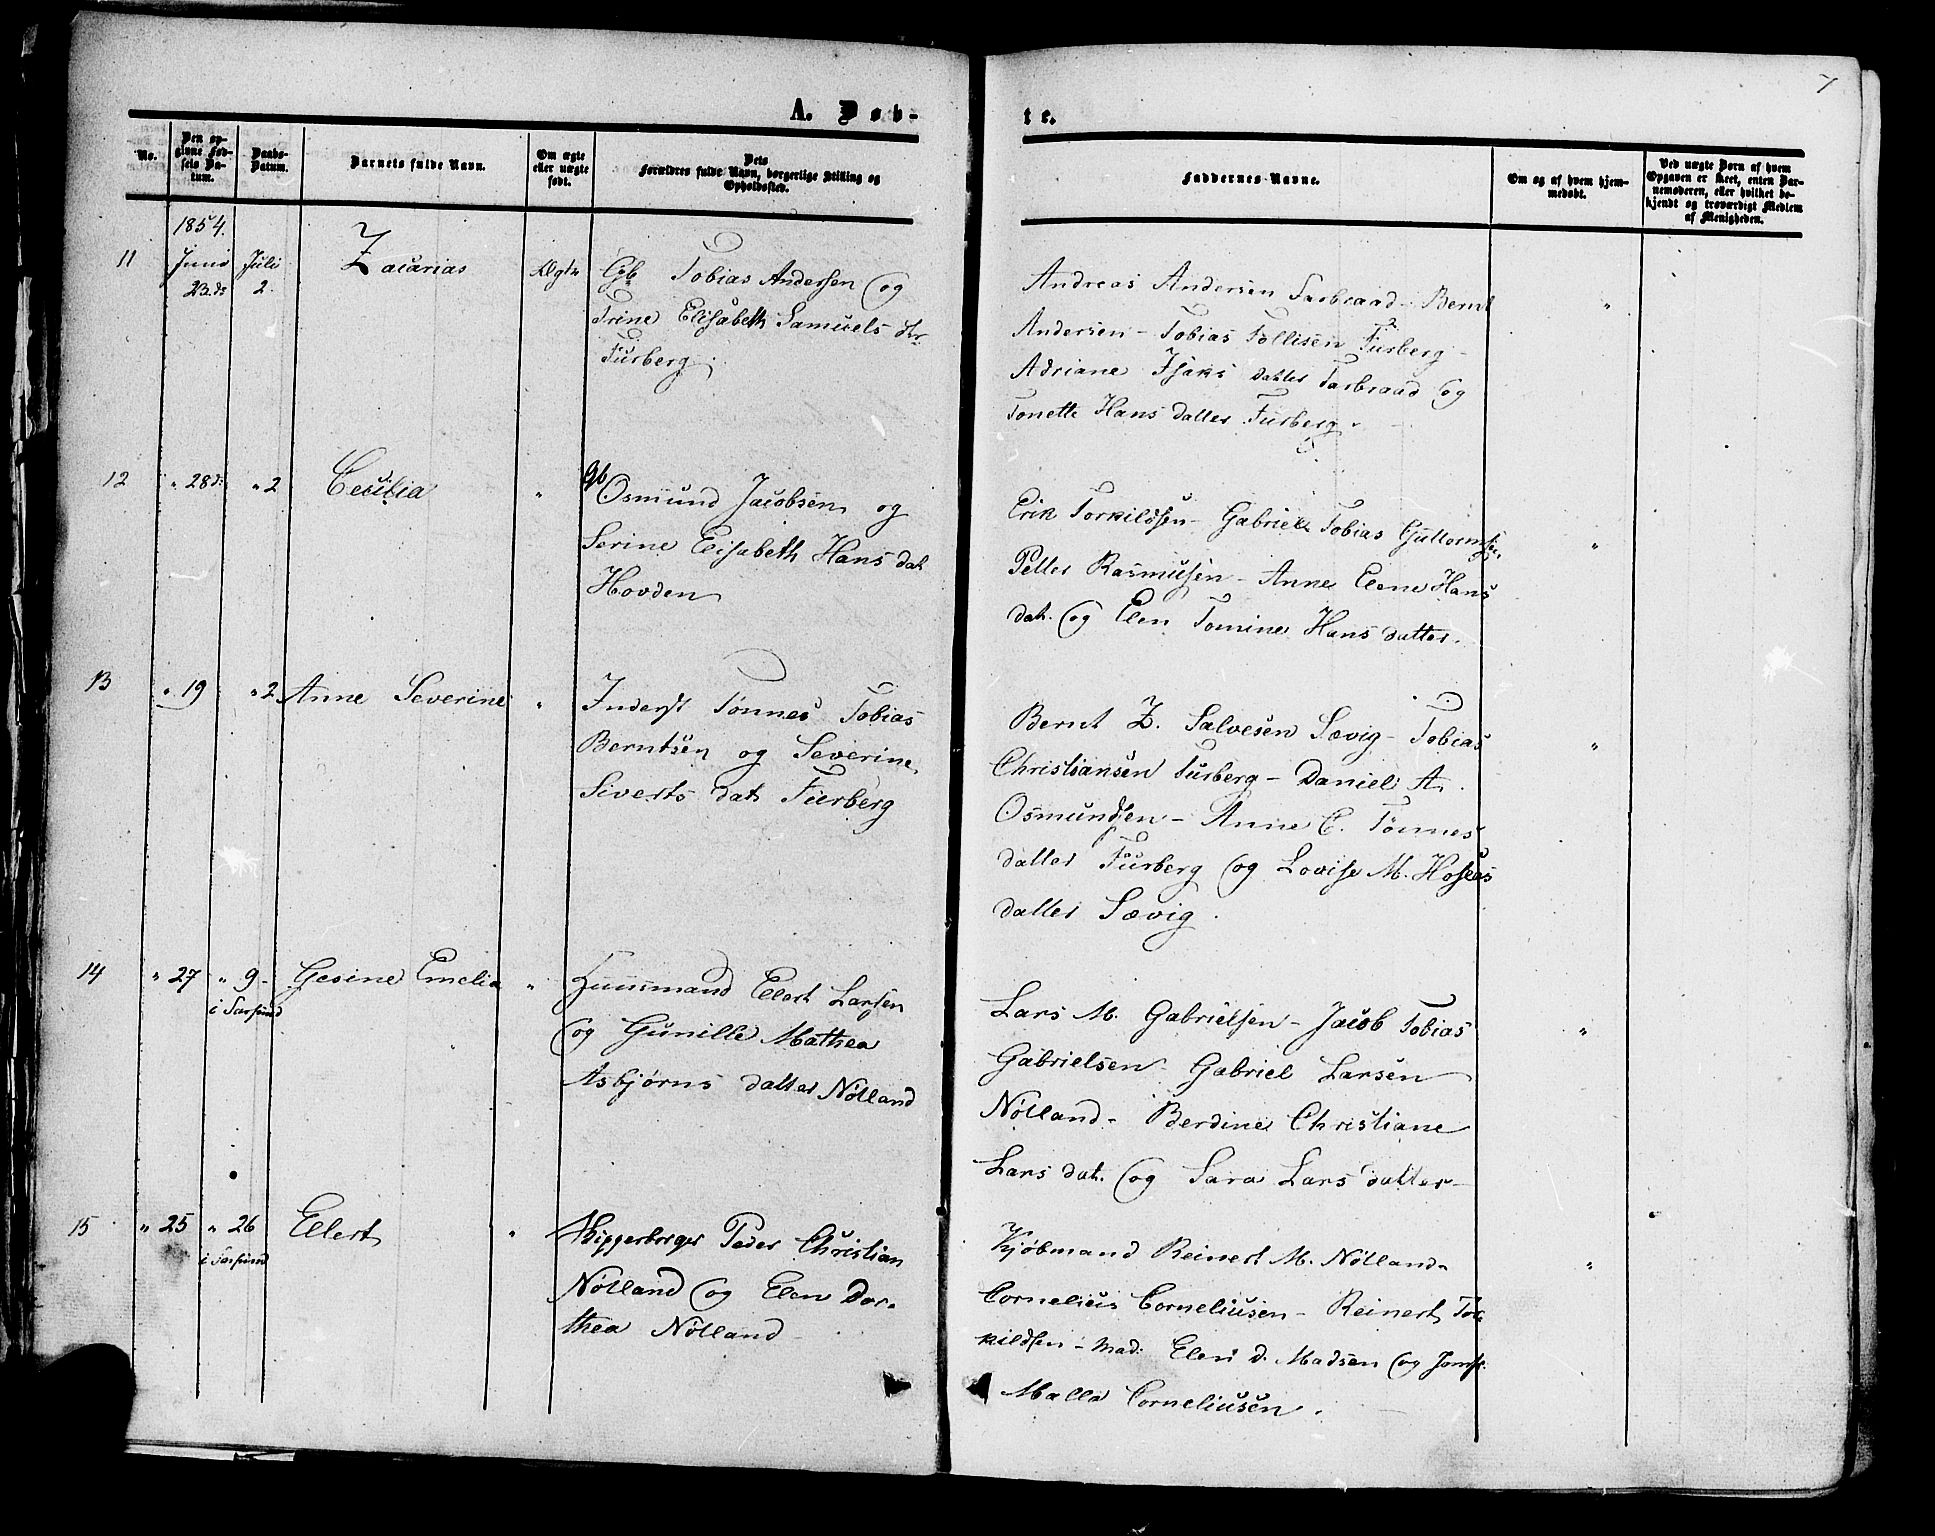 7
A. Døb-
te.
No.
Den op-
givne Fød-
sels Da-
tum.
Daabs-
Datum.
Barnets fulde Navn.
Om ægte
eller uægte
født.
Dets
Forældres fulde Navn, borgerlige Stilling og
Opholdssted.
Faddernes Navne.
Om og af hvem hjem-
medøbt.
Ved uægte Børn af hvem
Opgaven er skeet, enten Bar-
nemoderen, eller hvilket be-
kjendt og troværdigt Medlem
af Menigheden.
1854.
11
Juni
23de
Juli
2.
Zacarias
Ægte
Gb Tobias Andersen og
Trine Elisabeth Samuels dtr
Furberg
Andreas Andersen Farbraad - Bernt
Andersen - Tobias Tollisen Furberg -
Adriane Isaks datter Farbraad og
Tonette Hans datter Furberg.
"
12
" 28de
" 2
Cecilia
"
Gb Osmund Jacobsen og
Serine Elisabeth Hans dat
Hovden
Erik Torkildsen - Gabriel Tobias Guttormsen
Petter Rasmusen - Anne Elene Hans
dat. og Elen Tomine Hans datter.
"
13
" 19
" 2
Anne Severine
"
Inderst Tønnes Tobias
Berntsen og Severine
Siverts dat Furberg
Bernt Z. Salvesen Sævig - Tobias
Christiansen Furberg - Daniel A.
Osmundsen - Anne C. Tønnes
datter Furberg og Lovise M. Hoseas
datter Sævig.
"
14
" 27
" 9 -
i Farsund
Gesine Emelia
"
Huusmand Elert Larsen
og Gunille Mathea
Asbjørns datter Nølland
Lars M. Gabrielsen - Jacob Tobias
Gabrielsen - Gabriel Larsen
Nølland - Berdine Christiane
Lars dat. og Sara Lars datter -
"
15
" 25
" 26
i Farsund
Ellert
"
Skipperborger Peder Christian
Nølland og Elen Dor-
thea Nølland
Kjøbmand Reinert M. Nølland -
Cornelius Corneliusen - Reinert Tor-
kildsen - Mad: Elen D. Madsen og Jomfr.
Malla Corneliusen.
"